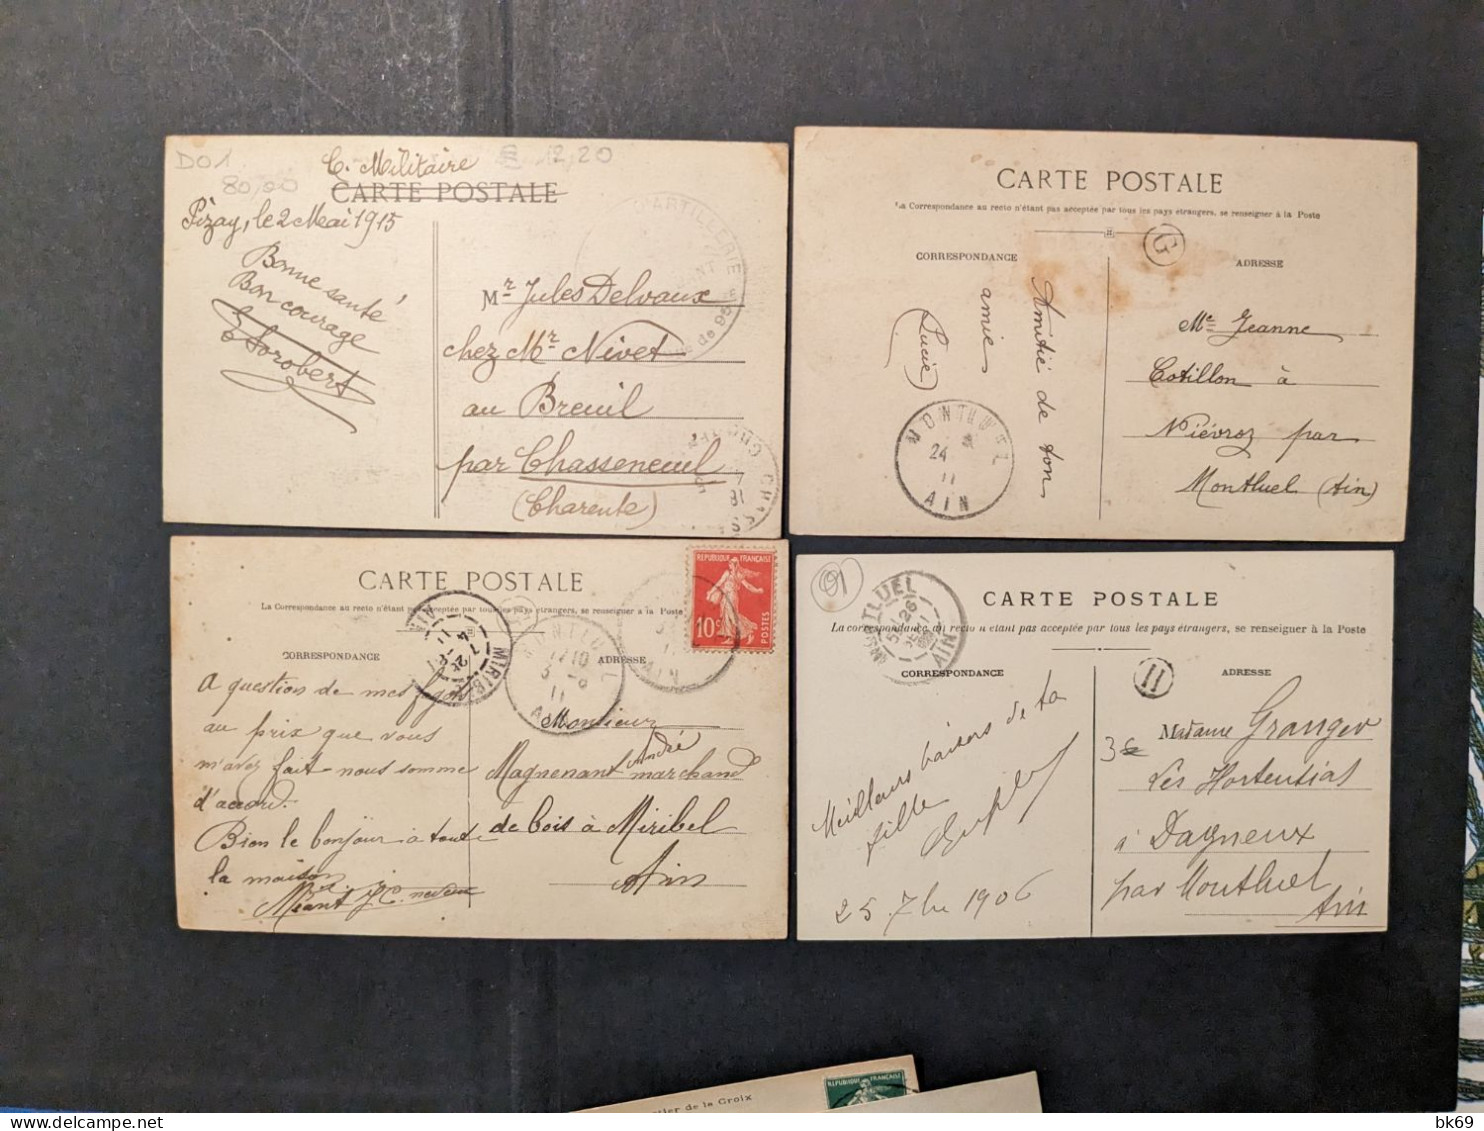 DO1
80,00
12,20
C. Militaire
CARTE POSTALE
Pizay, le 2 Mai 1915
Bonne santé
Bon courage
D'ARTILLERIE
Mr Jules Delvaux
chez Mr Nivet
au Breuil
par Chasseneuil
(Charente)
CARTE POSTALE
La Correspondance au recto n'étant pas acceptée par tous les pays étrangers, se renseigner à la Poste
G
CORRESPONDANCE
ADRESSE
Amitié de ton
amie
Lucie
MONTLUEL
24
11
AIN
Mle Jeanne
Cotillon à
Niévroz par
Montluel (Ain)
CARTE POSTALE
La Correspondance au recto n'étant pas acceptée par tous les pays étrangers, se renseigner à la Poste
REPUBLIQUE FRANÇAISE
10c
POSTES
CORRESPONDANCE
ADRESSE
MIRIBEL
MONTLUEL
AIN
AIN
A question de mes
au prix que vous
m'avez fait nous somme
d'accord.
Bien le bonjour à toute
la maison
Miant
Monsieur
André
Magnenant marchand
de bois à Miribel
Ain
01
MONTLUEL
26
AIN
CARTE POSTALE
La correspondance au recto n'étant pas acceptée par tous les pays étrangers, se renseigner à la Poste
CORRESPONDANCE
11
ADRESSE
Meilleurs baisers de ta
fille
25 7bre 1906
3€
Madame Granger
Les Hortensias
à Dagneux
par Montluel
Ain
REPUBLIQUE FRANÇAISE
de la Croix
bk69